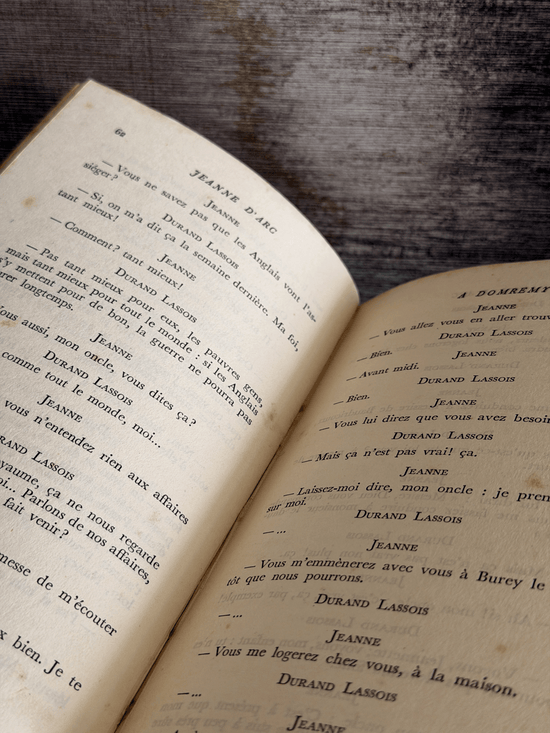 62
JEANNE D'ARC
JEANNE
— Vous ne savez pas que les Anglais vont l'as-
siéger?
DURAND LASSOIS
— Si, on m'a dit ça la semaine dernière. Ma foi,
tant mieux!
JEANNE
— Comment? tant mieux!
DURAND LASSOIS
— Pas tant mieux pour eux, les pauvres gens,
mais tant mieux pour tout le monde : si les Anglais
s'y mettent pour de bon, la guerre ne pourra pas
durer longtemps.
JEANNE
Vous aussi, mon oncle, vous dites ça?
DURAND LASSOIS
comme tout le monde, moi...
JEANNE
vous n'entendez rien aux affaires
DURAND LASSOIS
royaume, ça ne nous regarde
Parlons de nos affaires,
fait venir?
messe de m'écouter
bien. Je te
A DOMREMY
JEANNE
— Vous allez vous en aller trouv
DURAND LASSOIS
— Bien.
JEANNE
— Avant midi.
DURAND LASSOIS
— Bien.
JEANNE
— Vous lui direz que vous avez besoin
DURAND LASSOIS
— Mais ça n'est pas vrai! ça.
JEANNE
— Laissez-moi dire, mon oncle : je pren
sur moi.
DURAND LASSOIS
— ...
JEANNE
— Vous m'emmènerez avec vous à Burey le
tôt que nous pourrons.
DURAND LASSOIS
— ...
JEANNE
— Vous me logerez chez vous, à la maison.
DURAND LASSOIS
— ...
JEANNE